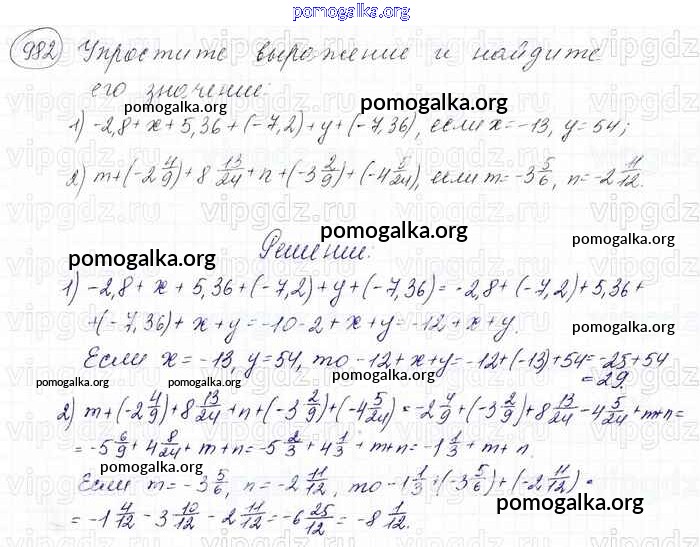 pomogalka.org
982 Упростите выражение и найдите
его значение:
pomogalka.org pomogalka.org
1) -2,8 + x + 5,36 + (-7,2) + y + (-7,36), если x = -13, y = 54;
2) m + (-2 4/9) + 8 13/24 + n + (-3 2/9) + (-4 5/24), если m = -3 5/6, n = -2 11/12.
pomogalka.org
Решение:
pomogalka.org pomogalka.org
1) -2,8 + x + 5,36 + (-7,2) + y + (-7,36) = -2,8 + (-7,2) + 5,36 +
+ (-7,36) + x + y = -10 - 2 + x + y = -12 + x + y.
pomogalka.org
Если x = -13, y = 54, то -12 + x + y = -12 + (-13) + 54 = -25 + 54
= 29.
pomogalka.org pomogalka.org pomogalka.org pomogalka.org
2) m + (-2 4/9) + 8 13/24 + n + (-3 2/9) + (-4 5/24) = -2 4/9 + (-3 2/9) + 8 13/24 - 4 5/24 + m + n =
= -5 6/9 + 4 8/24 + m + n = -5 2/3 + 4 1/3 + m + n = -1 1/3 + m + n.
pomogalka.org
Если m = -3 5/6, n = -2 11/12, то -1 1/3 + (-3 5/6) + (-2 11/12) =
= -1 4/12 - 3 10/12 - 2 11/12 = -6 25/12 = -8 1/12.
pomogalka.org
pomogalka.org